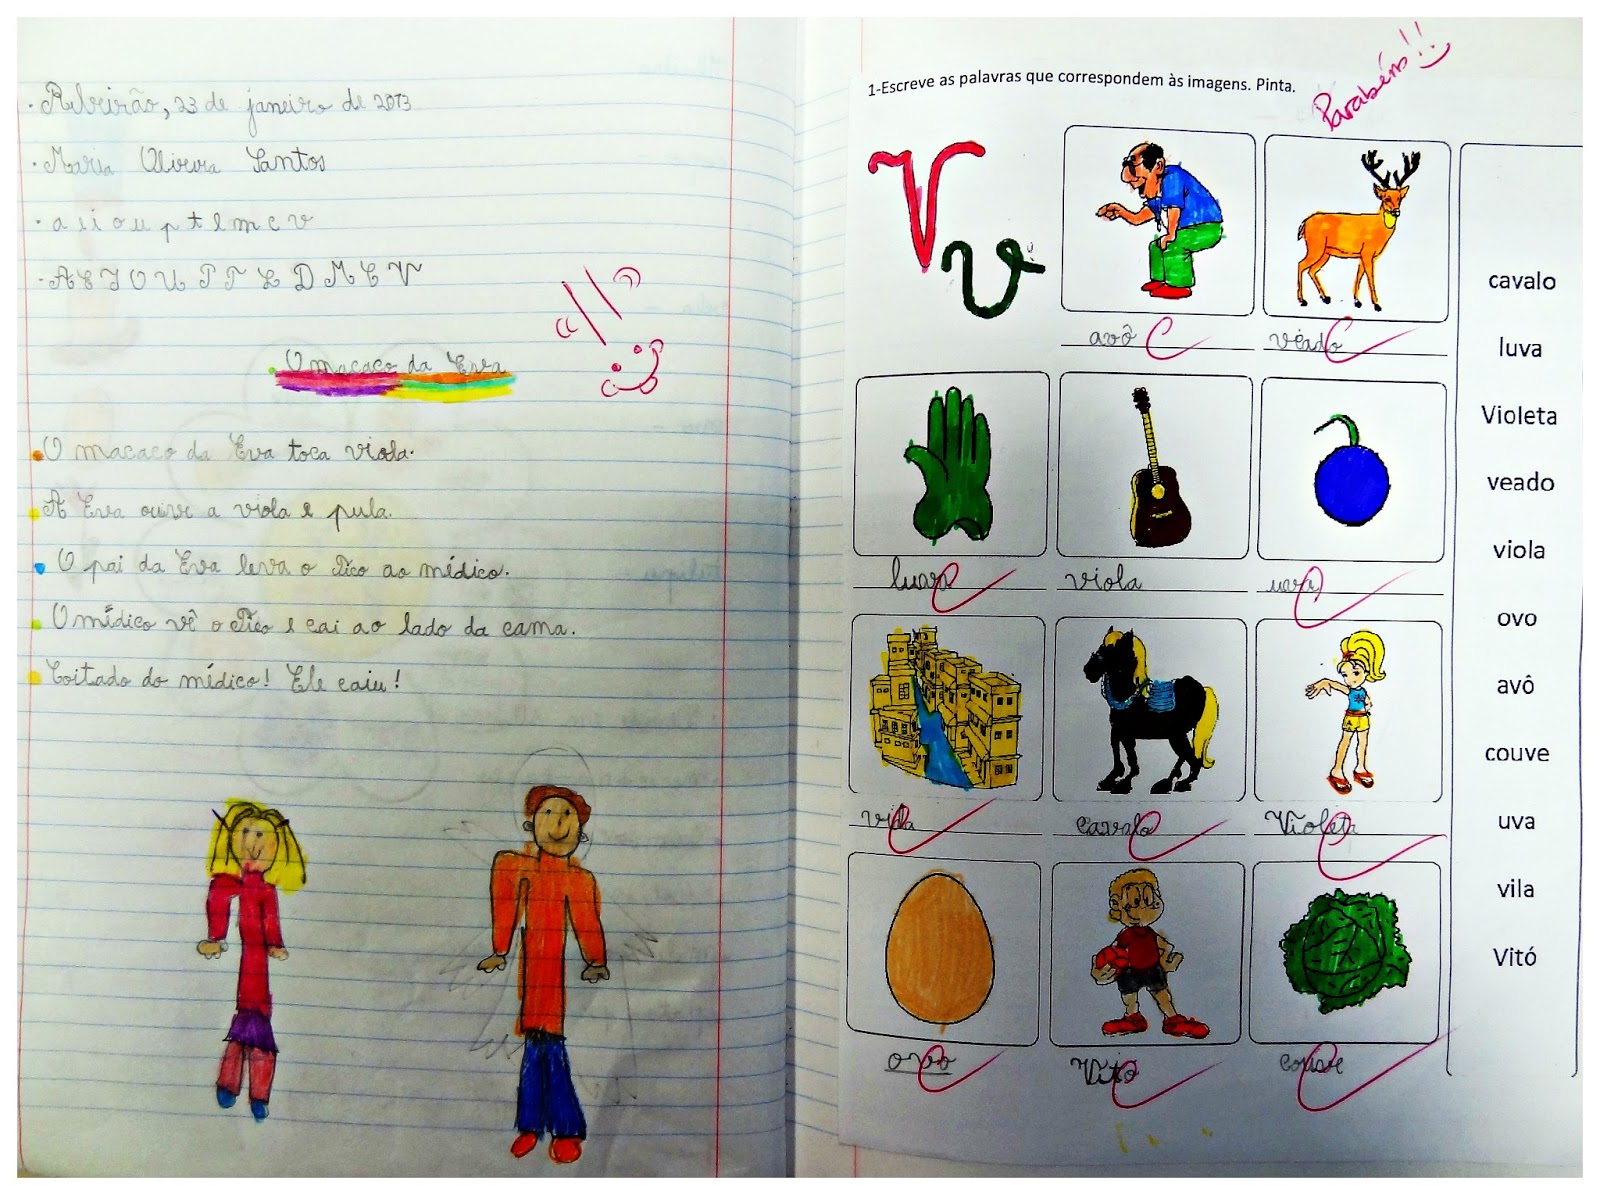 Ribeirão, 23 de janeiro de 2013
Maria Oliveira Santos
a e i o u p t l m c v
A E I O U P T L D M C V
O macaco da Eva
O macaco da Eva toca viola.
A Eva ouve a viola e pula.
O pai da Eva leva o Tico ao médico.
O médico vê o Tico e cai ao lado da cama.
Coitado do médico! Ele caiu!
1-Escreve as palavras que correspondem às imagens. Pinta.
Parabéns!!
V v
avô
veado
luva
viola
uva
vila
cavalo
Violeta
ovo
Vitó
couve
cavalo
luva
Violeta
veado
viola
ovo
avô
couve
uva
vila
Vitó